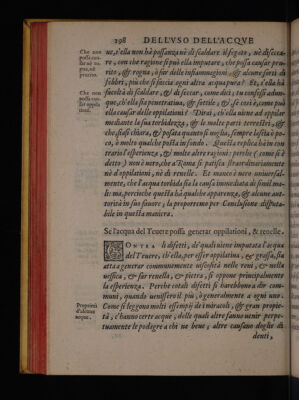 298 DELL'VSO DELL'ACQVE
Che non possa causar nè rogna, nè prurito.
Che non possa causar oppilationi.
Proprietà d'alcune acque.
ue, s'ella non hà possanza nè di scaldare il fegato, nè di seccare,
con che ragione si può ella imputare, che possa causar prurito,
& rogna, ò far delle infiammagioni, & alcune sorti di
febbri, più che si faccia ogni altra acqua pura? Et, s'ella hà
facoltà di scaldare, & di seccar, come dici, tu confessi adunque,
ch'ella sia penetratiua, & sottile; & se così è, come può
ella causar delle oppilationi? Dirai, ch'ella viene ad oppilar
mediante la sua torbidezza, & le molte parti terrestri, &
che, sia si chiara, & posata quanto si voglia, sempre lascia ò poco,
ò molto qualche posta in fondo. Questa replica hà in contrario
l'esperienza, & molte altre ragioni: perche (come si è
detto) non è vero, che a Roma si patisca straordinariamente
nè d'oppilationi, nè di renelle. Et manco è vero uniuersalmente,
che l'acqua torbida sia la causa immediata di simil male:
ma, perciche questa hà qualche apparenza, & alcune autorità
in suo fauore, la proporremo per Conclusione disputabile
in questa maniera.
Se l'acqua del Teuere possa generar oppilationi, & renelle.
CONTRA li difetti, de' quali viene imputata l'acqua
del Teuere, ch'ella, per esser oppilatiua, & grossa, sia
atta a generar communemente viscosità nelle reni, & nella
uessica, & far renella, & pietra, si oppone principalmente
la esperienza. Perche cotali difetti si harebbono a dir communi,
quando uenissero il più, ò generalmente a ogni uno.
Come si leggono molti essempij de i miracoli, & gran proprietà,
c'hanno certe acque; delle quali altre fanno uenir perpetuamente
le podagre a chi ne beue; altre causano doglie di
denti,